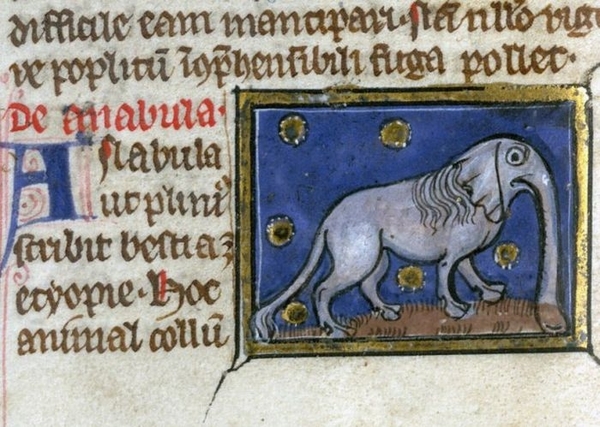 difficile eam mancipari. sꝫ in illo vige
re poplitū īcōp̄hensibili fuga pollet.
De anabula.
Aslabula
ut plini⁹
scribit bestia ē
etyopie. Hoc
animal collū